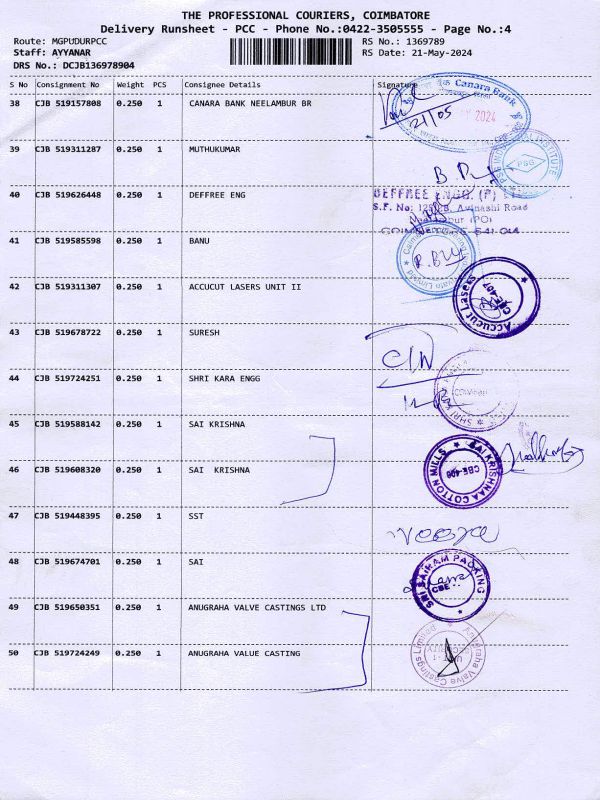 THE PROFESSIONAL COURIERS, COIMBATORE
Delivery Runsheet - PCC - Phone No.:0422-3505555 - Page No.:4
Route: MGPUDURPCC RS No.: 1369789
Staff: AYYANAR RS Date: 21-May-2024
DRS No.: DCJB136978904
S No Consignment No Weight PCS Consignee Details Signature
38 CJB 519157808 0.250 1 CANARA BANK NEELAMBUR BR
Canara Bank
21/05 2024
39 CJB 519311287 0.250 1 MUTHUKUMAR
PSG
40 CJB 519626448 0.250 1 DEFFREE ENG
DEFFREE ENGG. (P)
S.F. No: Avinashi Road
(PO)
COIMBATORE-641 014
41 CJB 519585598 0.250 1 BANU
42 CJB 519311307 0.250 1 ACCUCUT LASERS UNIT II
Accucut Lasers
CBE-407
43 CJB 519678722 0.250 1 SURESH
44 CJB 519724251 0.250 1 SHRI KARA ENGG
45 CJB 519588142 0.250 1 SAI KRISHNA
46 CJB 519608320 0.250 1 SAI KRISHNA
SAI KRISHNAA COTTON MILLS
47 CJB 519448395 0.250 1 SST
48 CJB 519674701 0.250 1 SAI
SRI SAIRAM PACKING
CBE
49 CJB 519650351 0.250 1 ANUGRAHA VALVE CASTINGS LTD
50 CJB 519724249 0.250 1 ANUGRAHA VALUE CASTING
Anugraha Valve Castings Limited